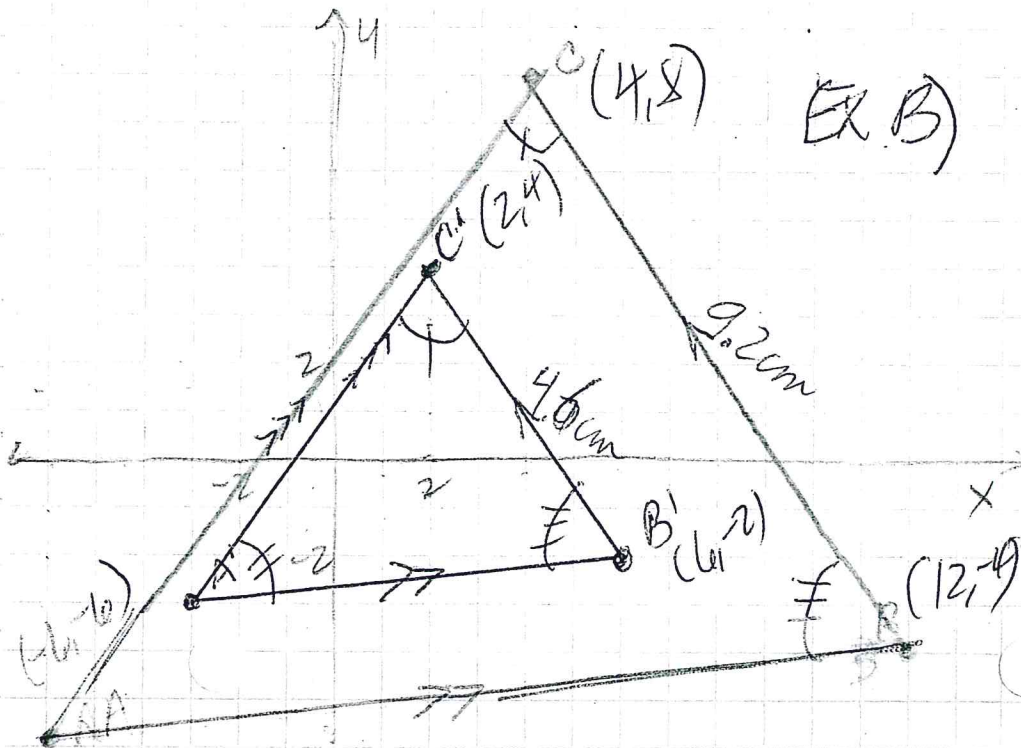 y
C (4,8)
Ex. B)
C' (2,4)
9.2cm
2
4.6cm
-2
2
x
-2
B' (6,-2)
(12,-4)
(-6,-6)
B
A